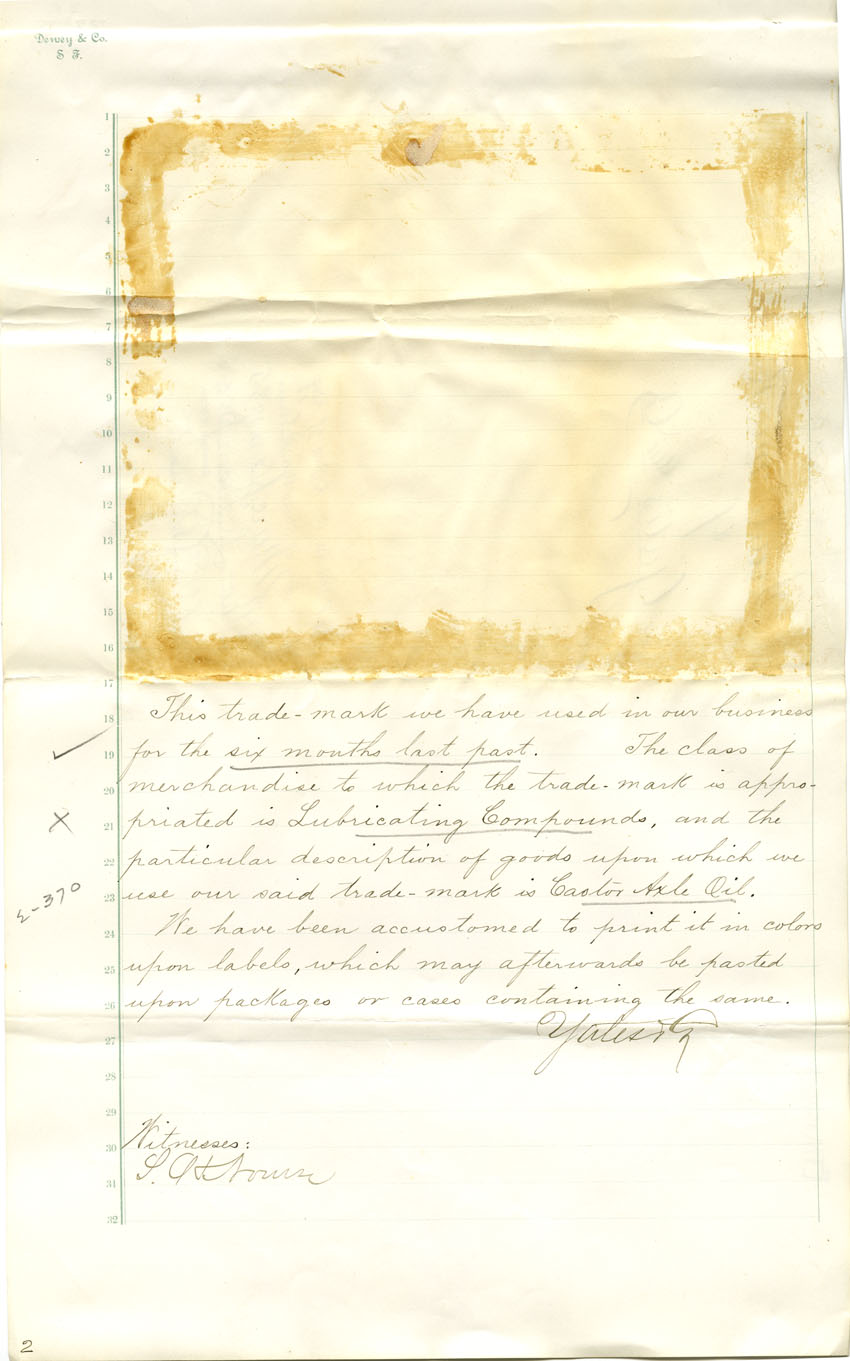 Dewey & Co.
S F.
1
2
3
4
5
6
7
8
9
10
11
12
13
14
15
16
17
18 This trade-mark we have used in our business
19 for the six months last past. The class of
20 merchandise to which the trade-mark is appro-
21 priated is Lubricating Compounds, and the
22 particular description of goods upon which we
23 use our said trade-mark is Castor Axle Oil.
Σ-370
24 We have been accustomed to print it in colors
25 upon labels, which may afterwards be pasted
26 upon packages or cases containing the same.
27 Yates & Co
28
29
30 Witnesses:
31 S. H. Nourse
32
2